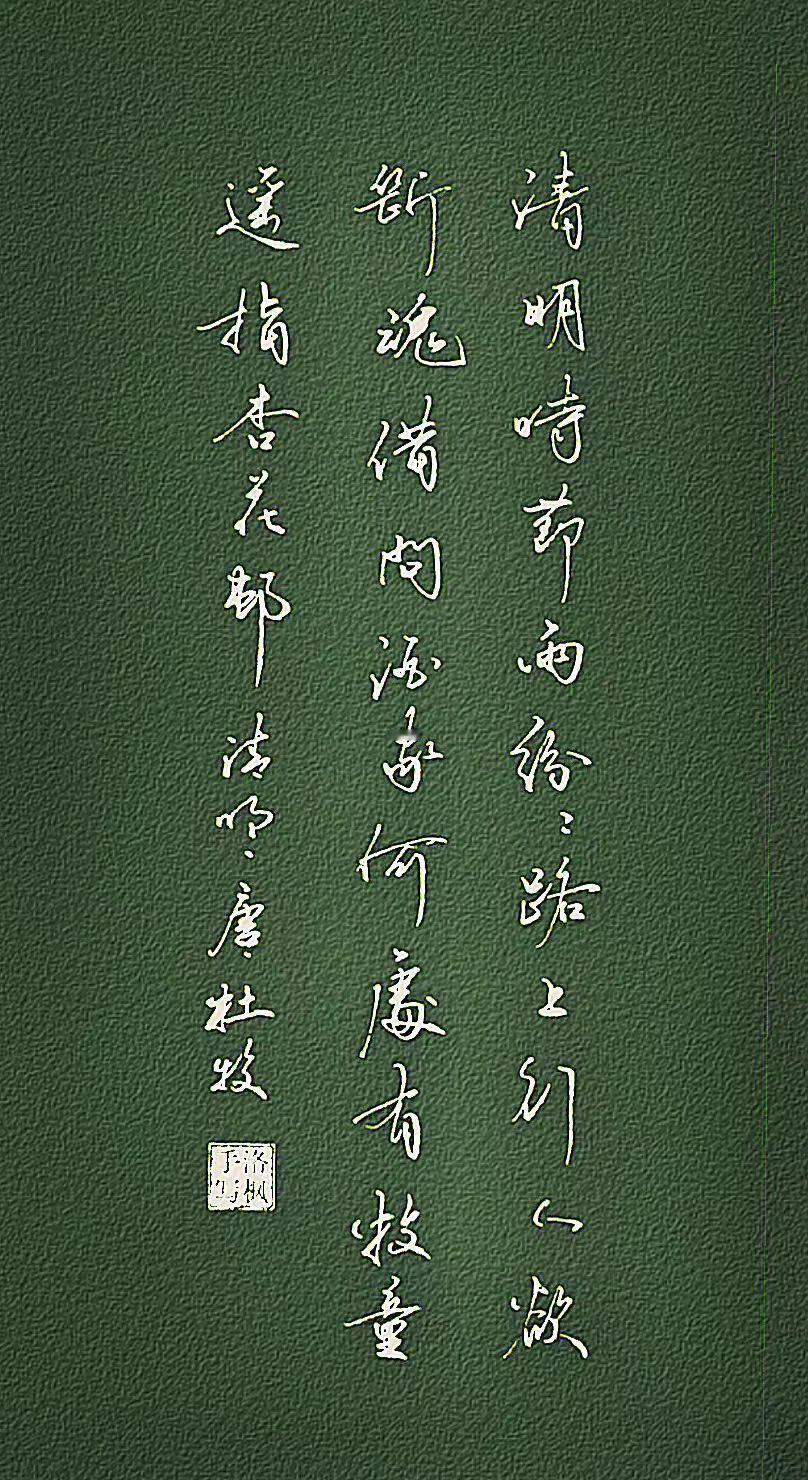 清明時節雨紛〻路上行人欲
斷魂借問酒家何處有牧童
遙指杏花邨 清明 唐 杜牧
洛枫
手写